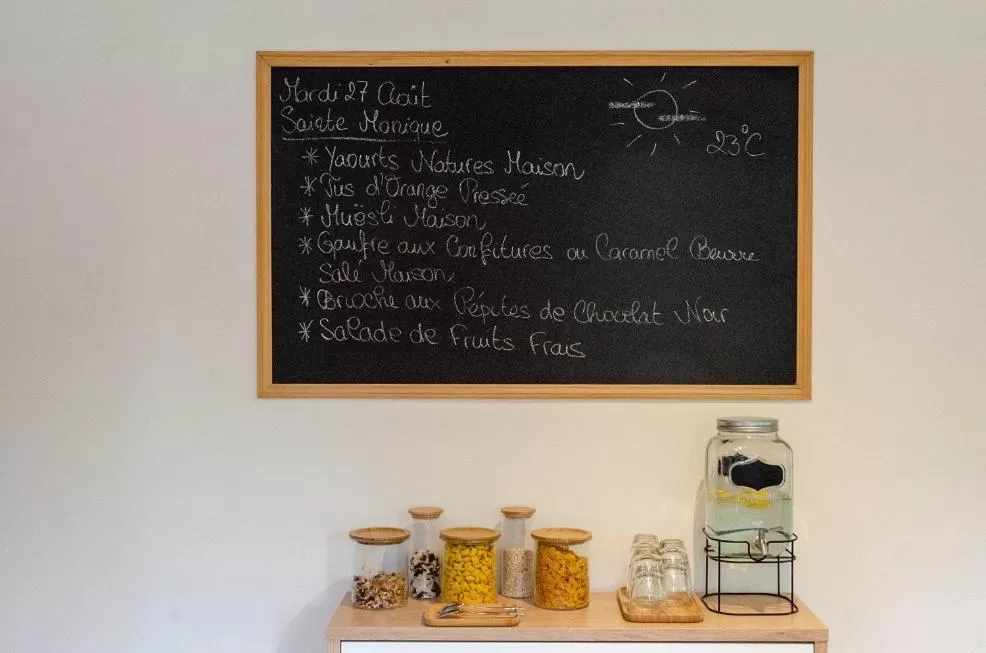 Mardi 27 Août
Sainte Monique
23°C
* Yaourts Natures Maison
* Jus d'Orange Pressée
* Muësli Maison
* Gaufre aux Confitures ou Caramel Beurre
Salé Maison
* Brioche aux Pépites de Chocolat Noir
* Salade de Fruits Frais